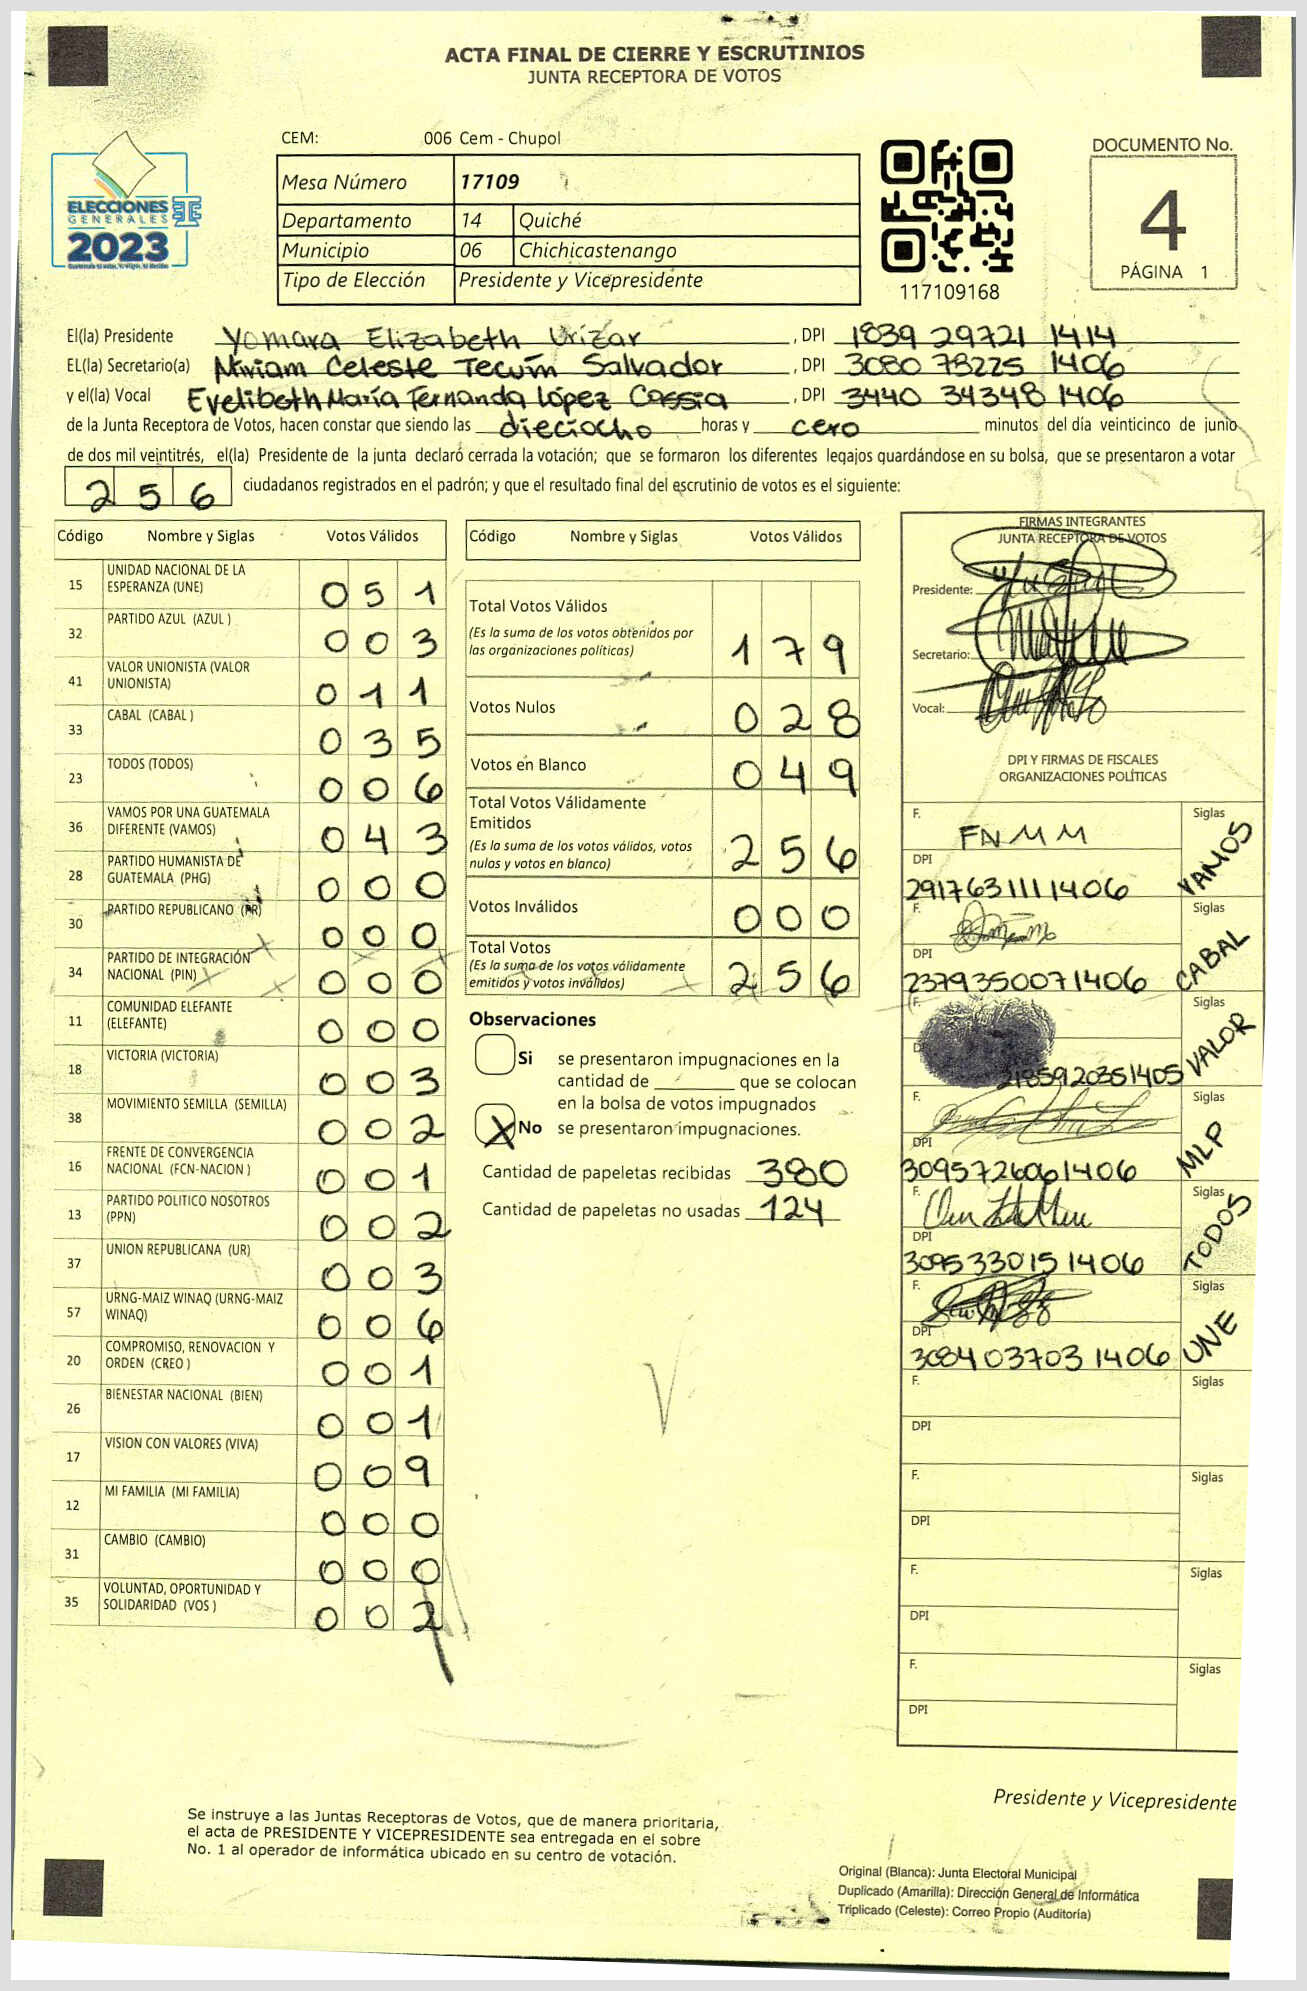 ACTA FINAL DE CIERRE Y ESCRUTINIOS
JUNTA RECEPTORA DE VOTOS
CEM: 006 Cem - Chupol
Mesa Número 17109
Departamento 14 Quiché
Municipio 06 Chichicastenango
Tipo de Elección Presidente y Vicepresidente
ELECCIONES
GENERALES
2023
117109168
DOCUMENTO No.
4
PÁGINA 1
El(la) Presidente Yomara Elizabeth Urízar , DPI 1839 29721 1414
EL(la) Secretario(a) Miriam Celeste Tecuín Salvador , DPI 3080 78225 1406
y el(la) Vocal Evelibeth María Fernanda López Cossia , DPI 3440 34348 1406
de la Junta Receptora de Votos, hacen constar que siendo las dieciocho horas y cero minutos del día veinticinco de junio
de dos mil veintitrés, el(la) Presidente de la junta declaró cerrada la votación; que se formaron los diferentes legajos quardándose en su bolsa, que se presentaron a votar
256 ciudadanos registrados en el padrón; y que el resultado final del escrutinio de votos es el siguiente:
Código Nombre y Siglas Votos Válidos
15 UNIDAD NACIONAL DE LA ESPERANZA (UNE) 051
32 PARTIDO AZUL (AZUL ) 003
41 VALOR UNIONISTA (VALOR UNIONISTA) 011
33 CABAL (CABAL ) 035
23 TODOS (TODOS) 006
36 VAMOS POR UNA GUATEMALA DIFERENTE (VAMOS) 043
28 PARTIDO HUMANISTA DE GUATEMALA (PHG) 000
30 PARTIDO REPUBLICANO (PR) 000
34 PARTIDO DE INTEGRACIÓN NACIONAL (PIN) 000
11 COMUNIDAD ELEFANTE (ELEFANTE) 000
18 VICTORIA (VICTORIA) 003
38 MOVIMIENTO SEMILLA (SEMILLA) 002
16 FRENTE DE CONVERGENCIA NACIONAL (FCN-NACION ) 001
13 PARTIDO POLITICO NOSOTROS (PPN) 002
37 UNION REPUBLICANA (UR) 003
57 URNG-MAIZ WINAQ (URNG-MAIZ WINAQ) 006
20 COMPROMISO, RENOVACION Y ORDEN (CREO ) 001
26 BIENESTAR NACIONAL (BIEN) 001
17 VISION CON VALORES (VIVA) 009
12 MI FAMILIA (MI FAMILIA) 000
31 CAMBIO (CAMBIO) 000
35 VOLUNTAD, OPORTUNIDAD Y SOLIDARIDAD (VOS ) 002
Código Nombre y Siglas Votos Válidos
Total Votos Válidos
(Es la suma de los votos obtenidos por
las organizaciones políticas) 179
Votos Nulos 028
Votos en Blanco 049
Total Votos Válidamente
Emitidos
(Es la suma de los votos válidos, votos
nulos y votos en blanco) 256
Votos Inválidos 000
Total Votos
(Es la suma de los votos válidamente
emitidos y votos inválidos) 256
Observaciones
Si se presentaron impugnaciones en la
cantidad de ________ que se colocan
en la bolsa de votos impugnados
X No se presentaron impugnaciones.
Cantidad de papeletas recibidas 380
Cantidad de papeletas no usadas 124
FIRMAS INTEGRANTES
JUNTA RECEPTORA DE VOTOS
Presidente:
Secretario:
Vocal:
DPI Y FIRMAS DE FISCALES
ORGANIZACIONES POLÍTICAS
F. FNMM Siglas VAMOS
DPI
2917631111406
F. Siglas CABAL
DPI
2379350071406
F. Siglas VALOR
2185920351405
F. Siglas MLP
DPI
3095726061406
F. Siglas TODOS
DPI
3095330151406
F. Siglas UNE
DPI
3084037031406
F. Siglas
DPI
F. Siglas
DPI
F. Siglas
DPI
F. Siglas
DPI
Presidente y Vicepresidente
Se instruye a las Juntas Receptoras de Votos, que de manera prioritaria,
el acta de PRESIDENTE Y VICEPRESIDENTE sea entregada en el sobre
No. 1 al operador de informática ubicado en su centro de votación.
Original (Blanca): Junta Electoral Municipal
Duplicado (Amarilla): Dirección General de Informática
Triplicado (Celeste): Correo Propio (Auditoría)